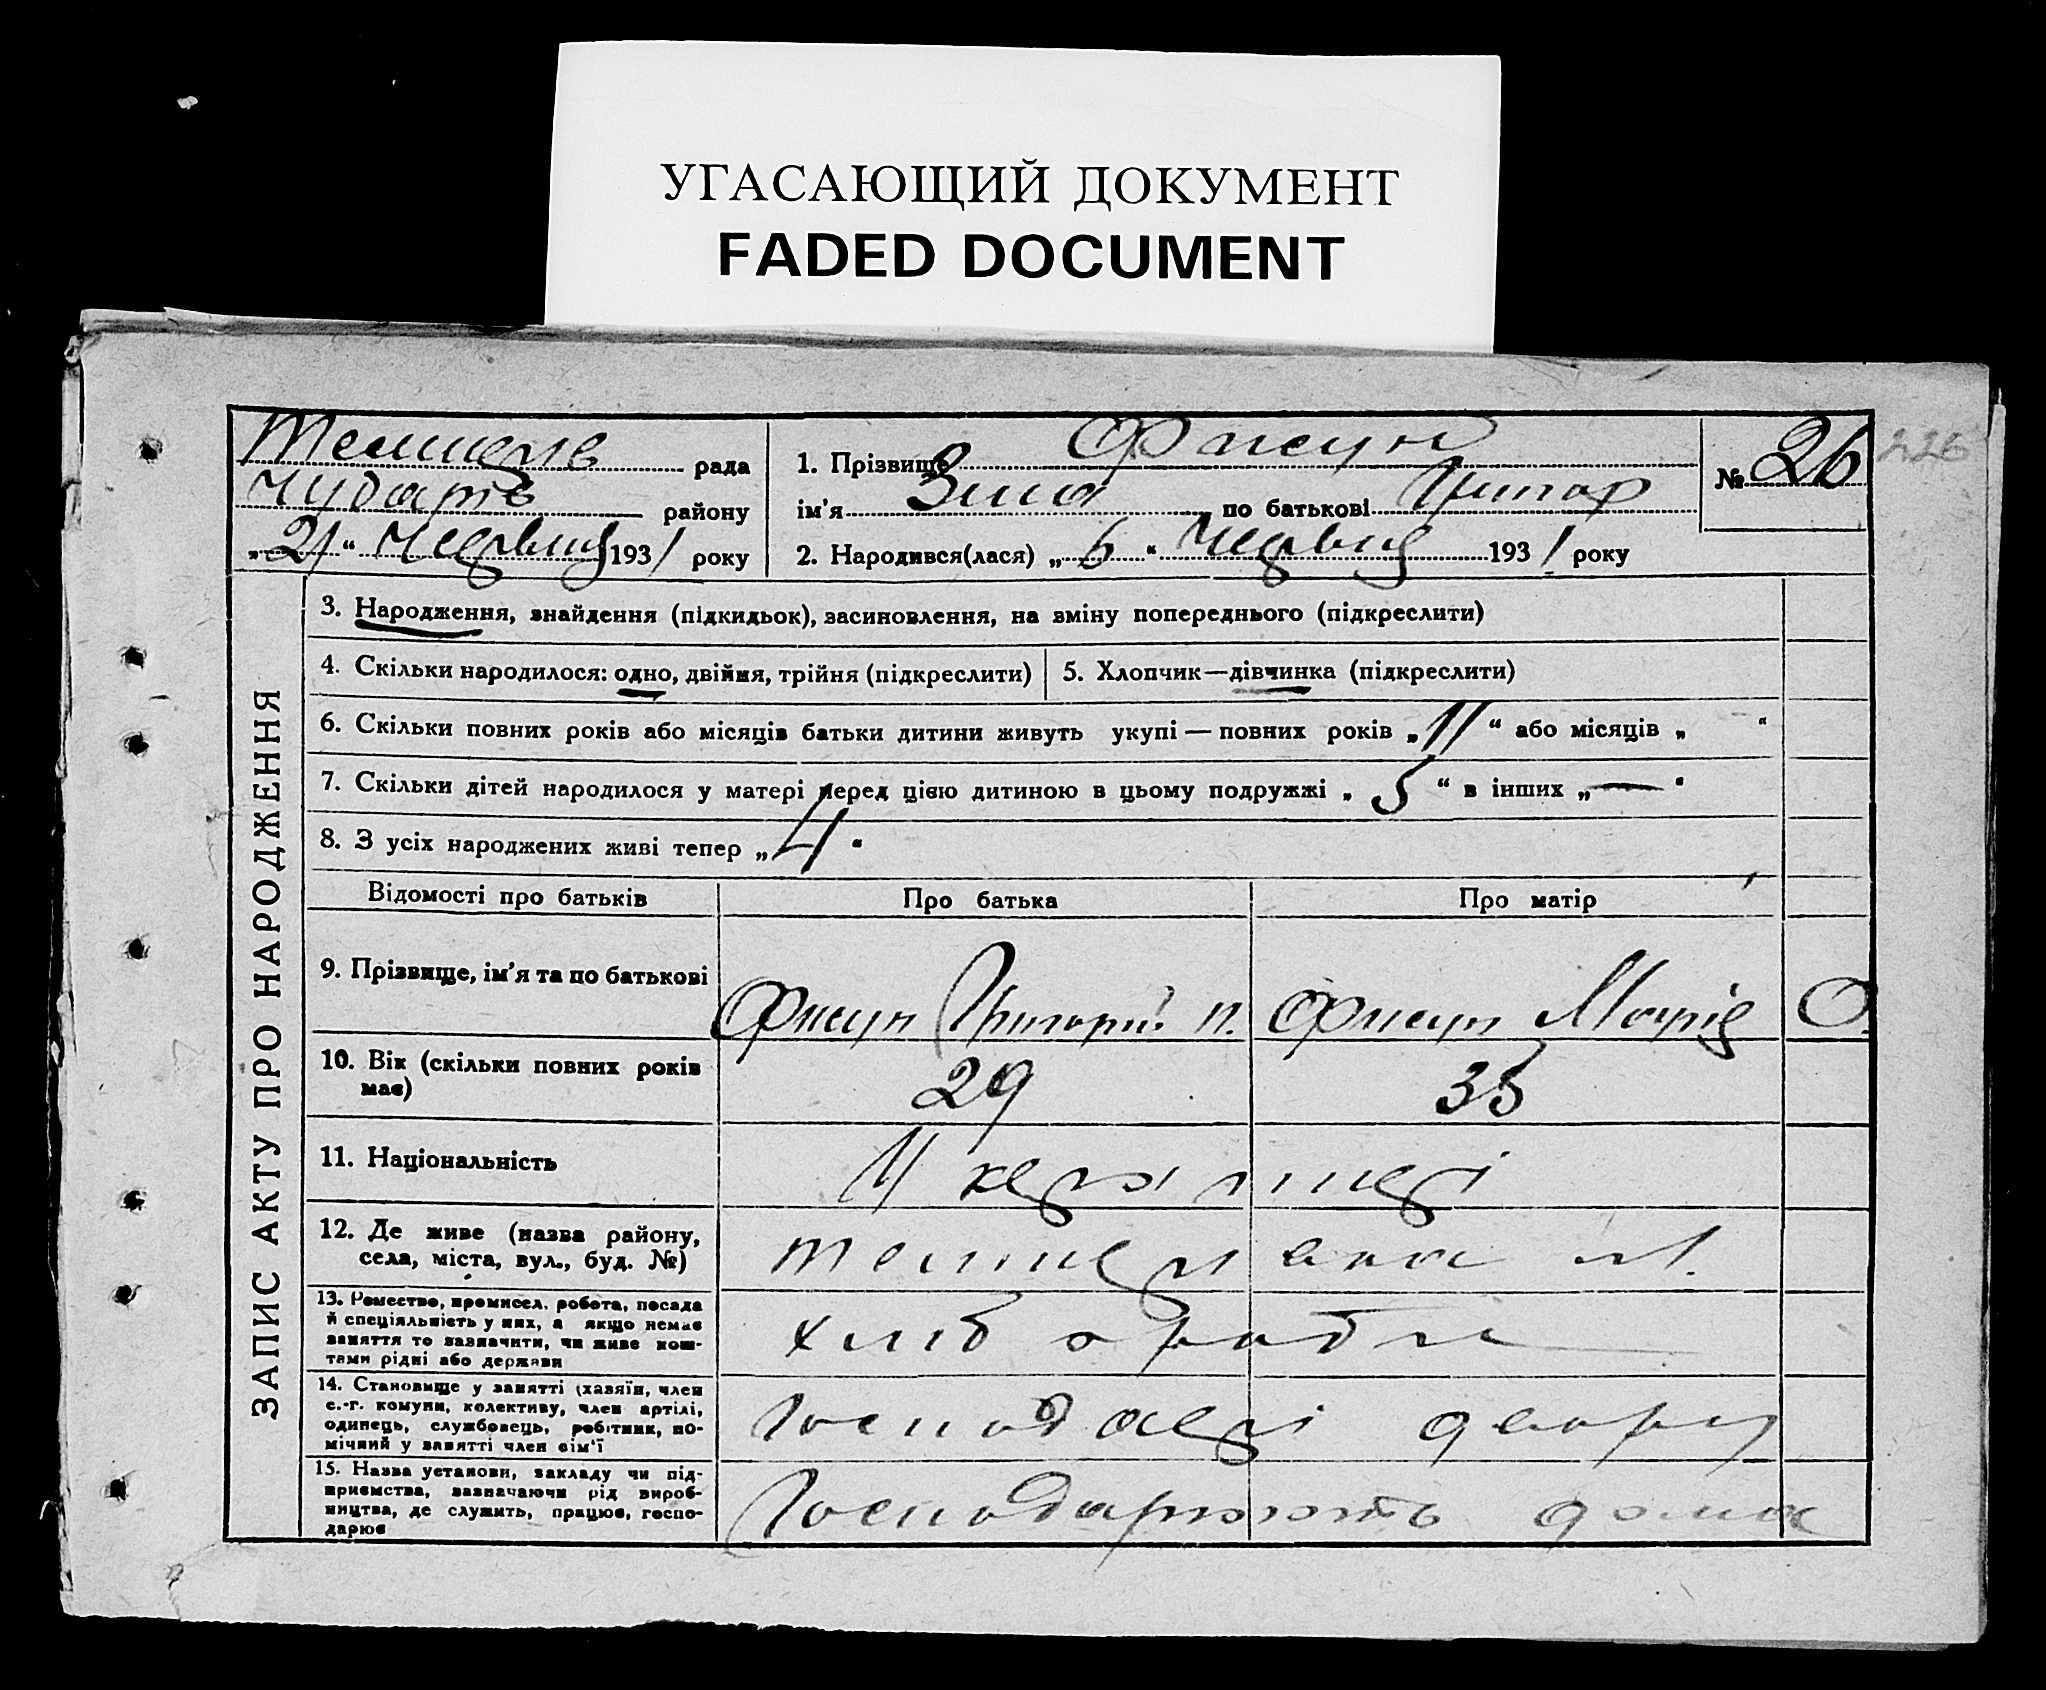 УГАСАЮЩИЙ ДОКУМЕНТ
FADED DOCUMENT
226
рада
району
„21“ Червня 1931 року
1. Прізвище Фисун
ім'я Зина по батькові Григор
2. Народився(лася) „6“ Червня 1931 року
№ 26
ЗАПИС АКТУ ПРО НАРОДЖЕННЯ
3. Народження, знайдення (підкидьок), засиновлення, на зміну попереднього (підкреслити)
4. Скільки народилося: одно, двійня, трійня (підкреслити)
5. Хлопчик—дівчинка (підкреслити)
6. Скільки повних років або місяців батьки дитини живуть укупі — повних років „11“ або місяців „ “
7. Скільки дітей народилося у матері перед цією дитиною в цьому подружжі „5“ в інших „—“
8. З усіх народжених живі тепер „4“
Відомості про батьків Про батька Про матір
9. Прізвище, ім'я та по батькові Фисун Григорий П. Фисун Марія О.
10. Вік (скільки повних років
має) 29 35
11. Національність Українці
12. Де живе (назва району,
села, міста, вул., буд. №)
13. Ремество, промисел, робота, посада
й спеціяльність у них, а якщо немає
заняття то зазначити, чи живе кош-
тами рідні або держави
хлібороби
14. Становище у занятті (хазяїн, член
с.-г. комуни, колективу, член артілі,
одинець, службовець, робітник, по-
мічний у занятті член сім'ї
Господарі двору
15. Назва установи, закладу чи під-
приємства, зазначаючи рід вироб-
ництва, де служить, працює, госпо-
дарює
Господарюють дома